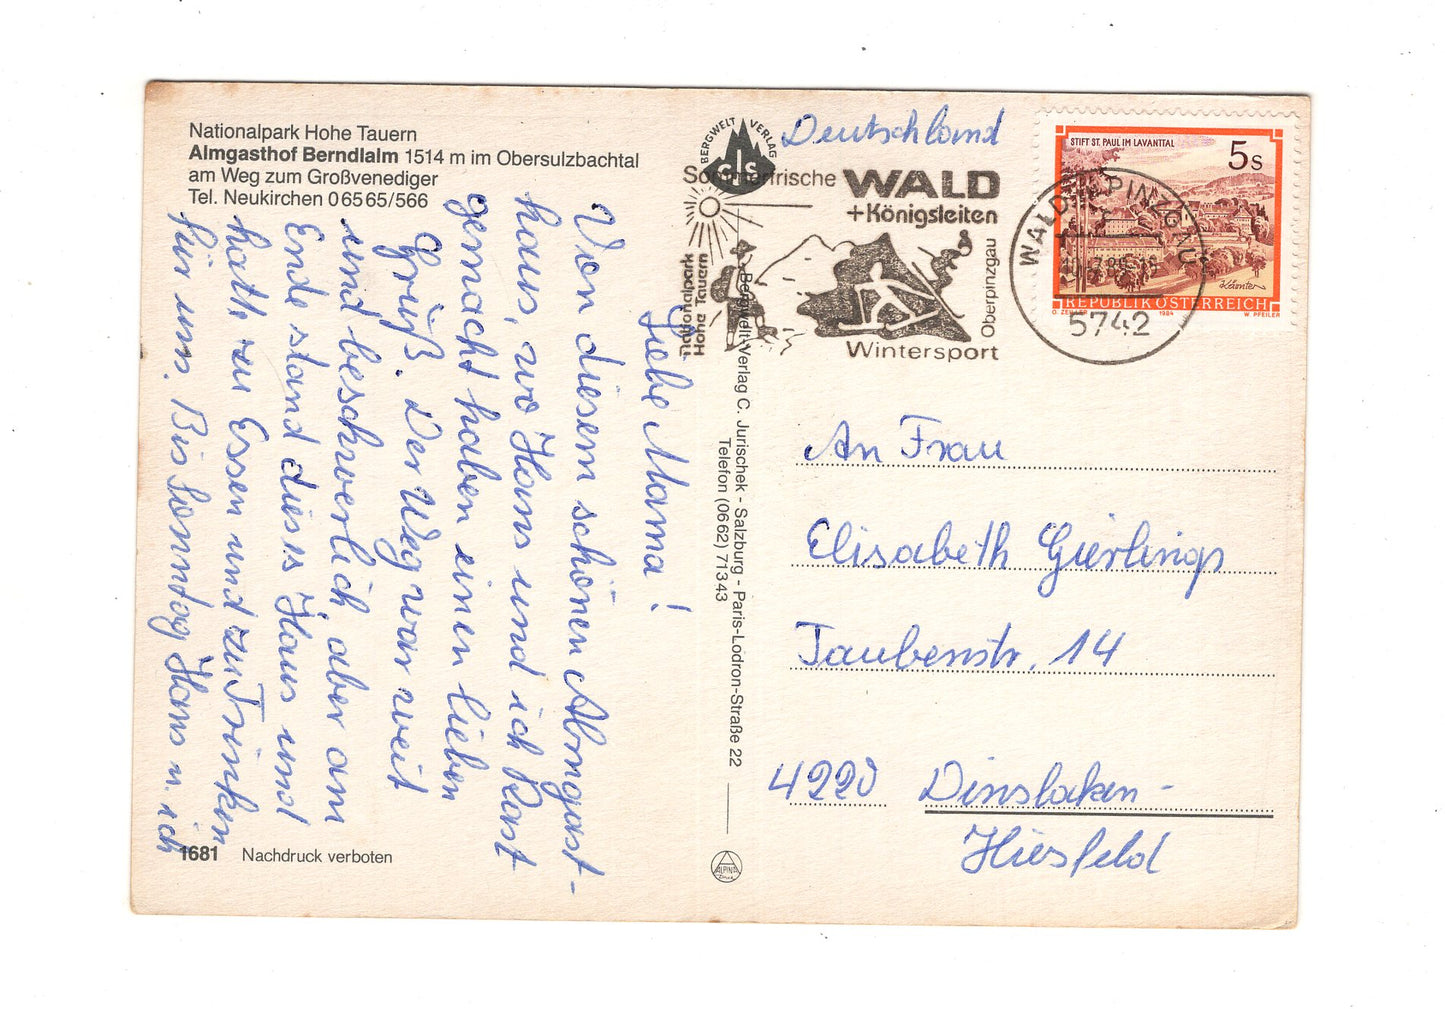 Nationalpark Hohe Tauern
Almgasthof Berndlalm 1514 m im Obersulzbachtal
am Weg zum Großvenediger
Tel. Neukirchen 0 65 65/566
Liebe Mama!
Von diesem schönen Almgast-
haus, wo Hans und ich Rast
gemacht haben einen lieben
Gruß. Der Weg war weit
und beschwerlich, aber am
Ende stand dies Haus und
hatte zu Essen und zu Trinken
für uns. Bis Sonntag Hans u. ich
1681 Nachdruck verboten
BERGWELT VERLAG
Bergwelt-Verlag C. Jurischek - Salzburg - Paris-Lodron-Straße 22
Telefon (06 62) 713 43
ALPINA
Deutschland
Sommerfrische WALD
+Königsleiten
Nationalpark
Hohe Tauern
Oberpinzgau
Wintersport
WALD PINZGAU
5742
STIFT ST. PAUL IM LAVANTTAL
5 S
Kärnten
REPUBLIK ÖSTERREICH
O. ZEILLER 1984 W. PFEILER
An Frau
Elisabeth Gierlings
Taubenstr. 14
4220 Dinslaken-
Hiesfeld